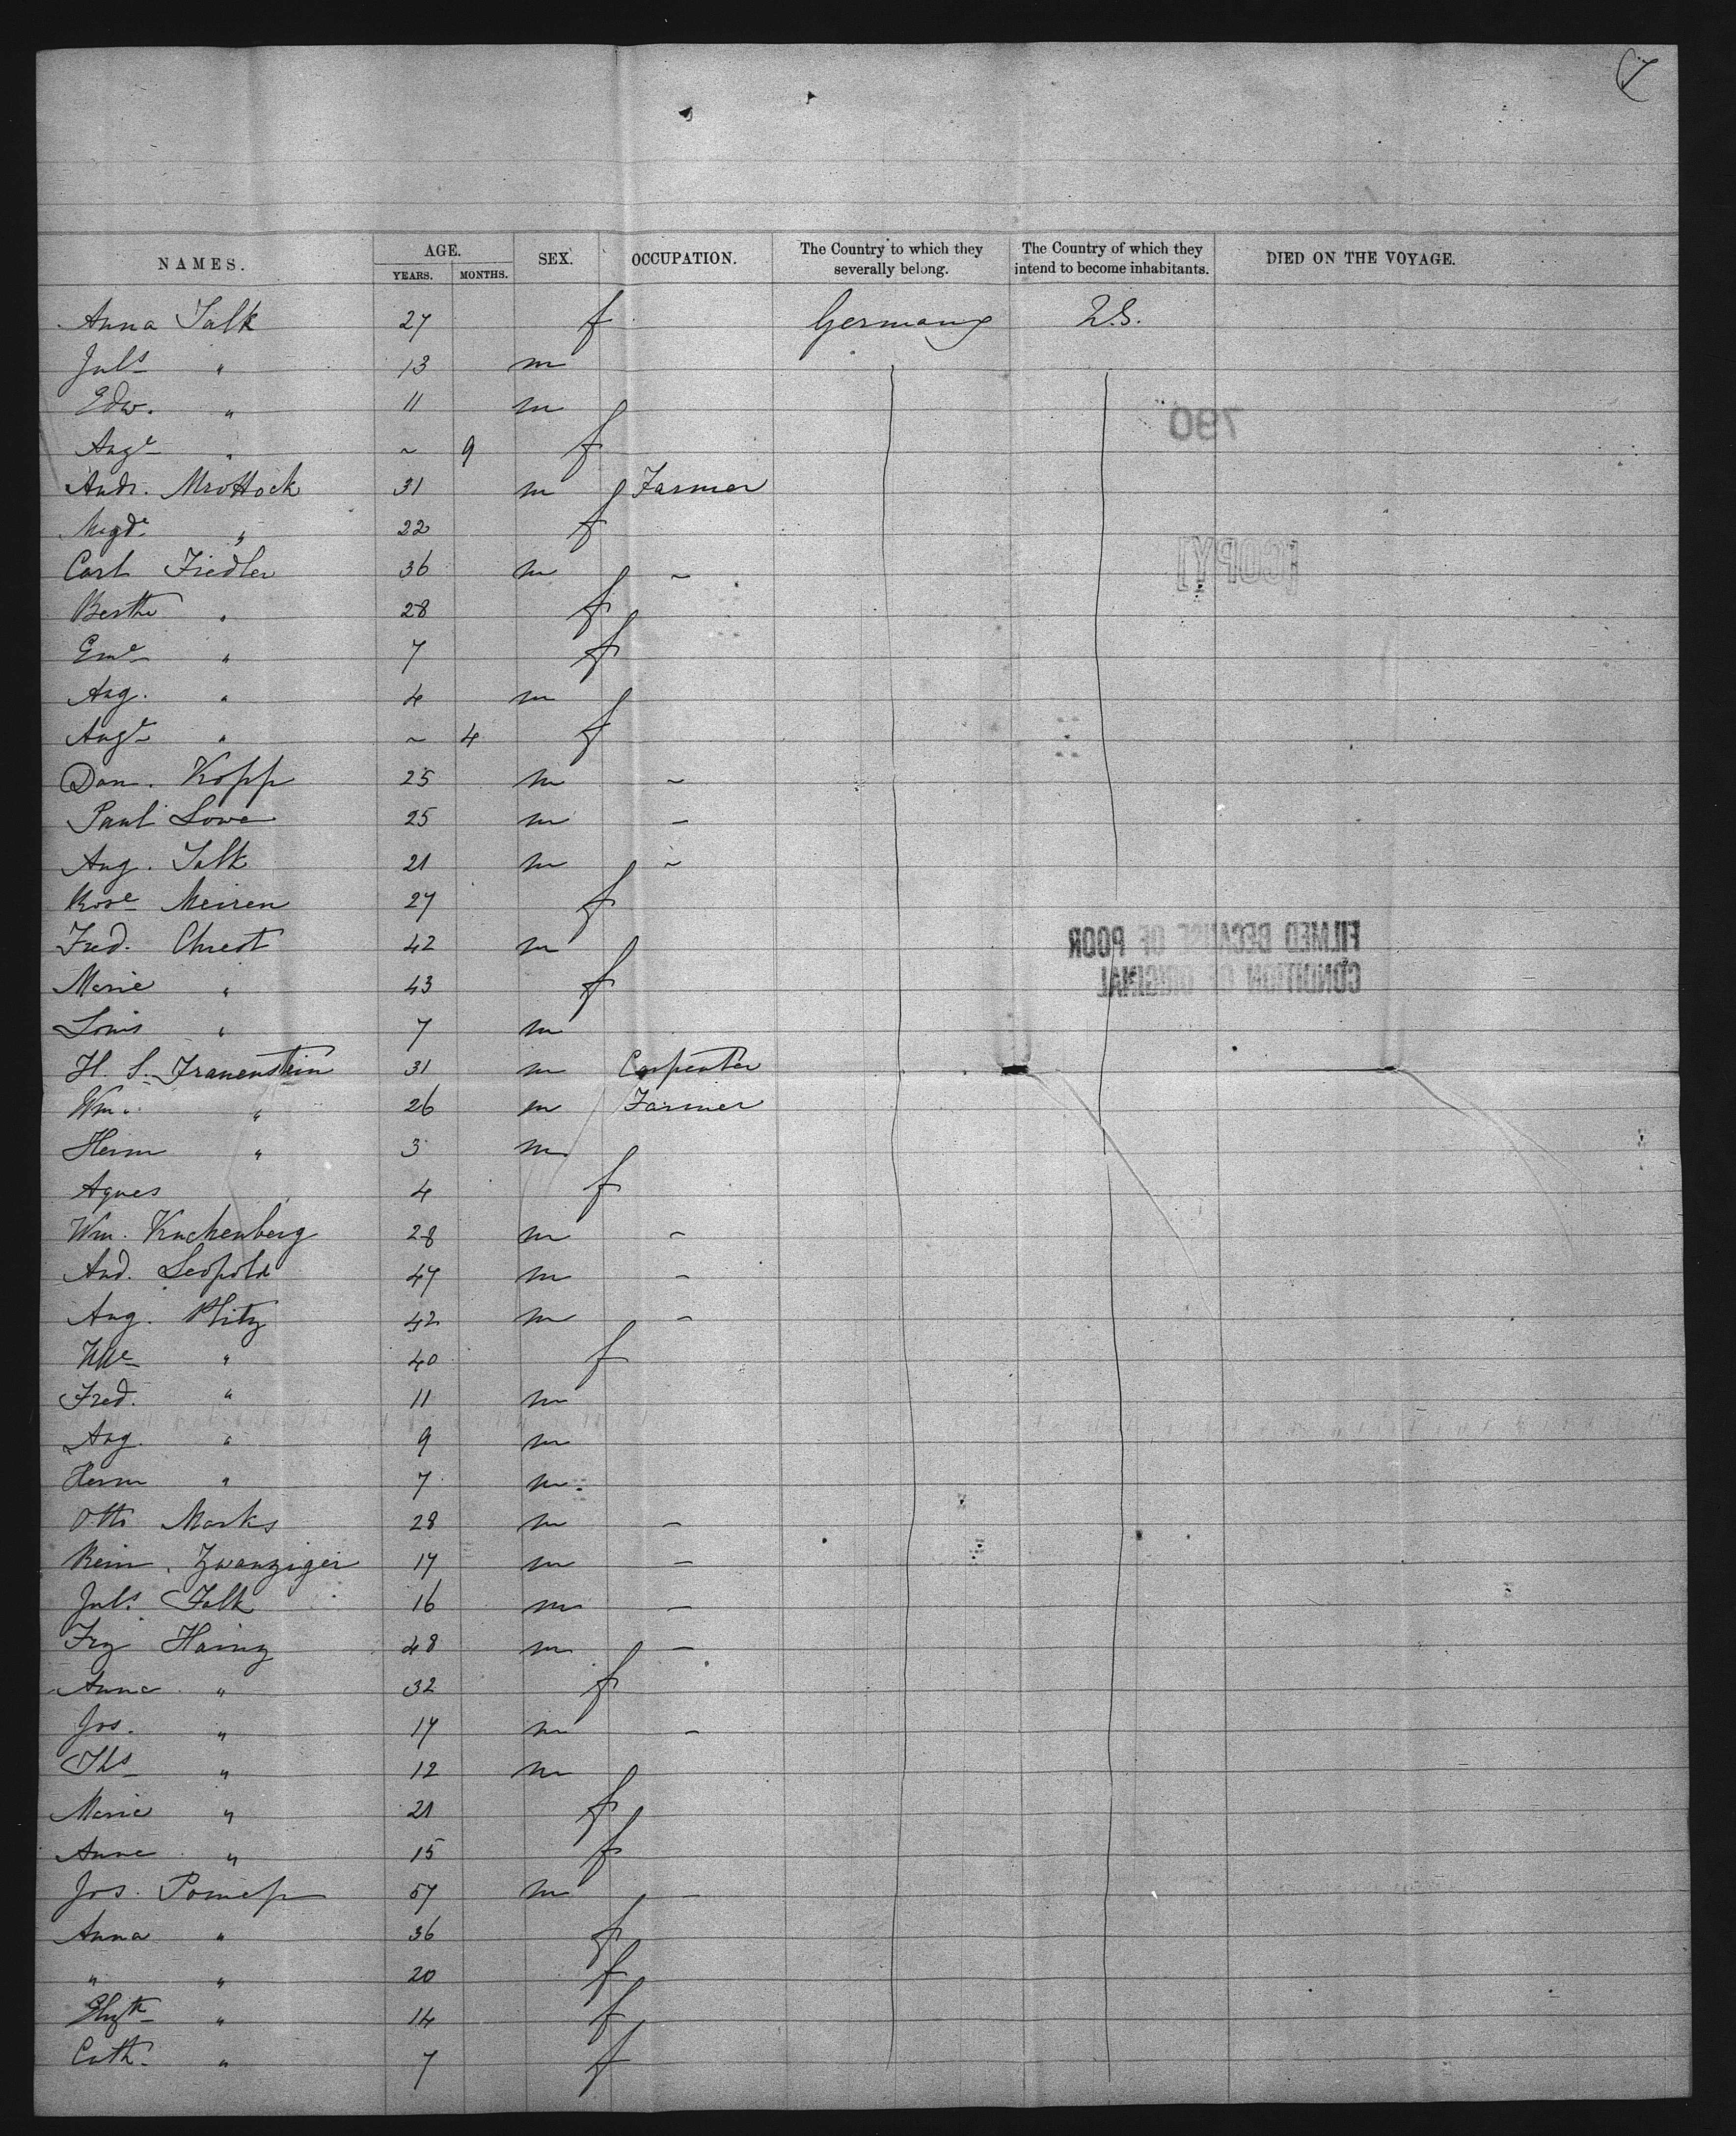 NAMES. AGE. YEARS. MONTHS. SEX. OCCUPATION. The Country to which they severally belong. The Country of which they intend to become inhabitants. DIED ON THE VOYAGE.
Anna Falk 27 f Germany U.S.
Juls " 13 m
Edw. " 11 m
Auge " ~ 9 f
Andr. Mrottock 31 m Farmer
Magde " 22 f
Carl Fiedler 36 m ~
Berthe " 28 f
Eme " 7 f
Aug. " 4 m
Auge " ~ 4 f
Dan. Kopp 25 m ~
Paul Lowe 25 m -
Aug. Falk 21 m ~
Rose Meiren 27 f
Fred. Christ 42 m
Marie " 43 f
Louis " 7 m
H. S. Frauenstein 31 m Carpenter
Wm. " 26 m Farmer
Herm " 3 m
Agnes 4 f
Wm. Kuchenberg 28 m ~
And. Leopold 47 m -
Aug. Plitz 42 m -
" 40 f
Fred. " 11 m
Aug. " 9 m
Herm " 7 m
Otto Marks 28 m -
Rein. Zwanziger 17 m -
Juls Falk 16 m -
Frz Hainz 48 m -
Anna " 32 f
Jos. " 17 m -
Ths " 12 m
Marie " 21 f
Anne " 15 f
Jos. 57 m -
Anna " 36 f
" " 20 f
Elizth " 14 f
Cath. " 7 f
790
[COPY]
FILMED BECAUSE OF POOR
CONDITION OF ORIGINAL